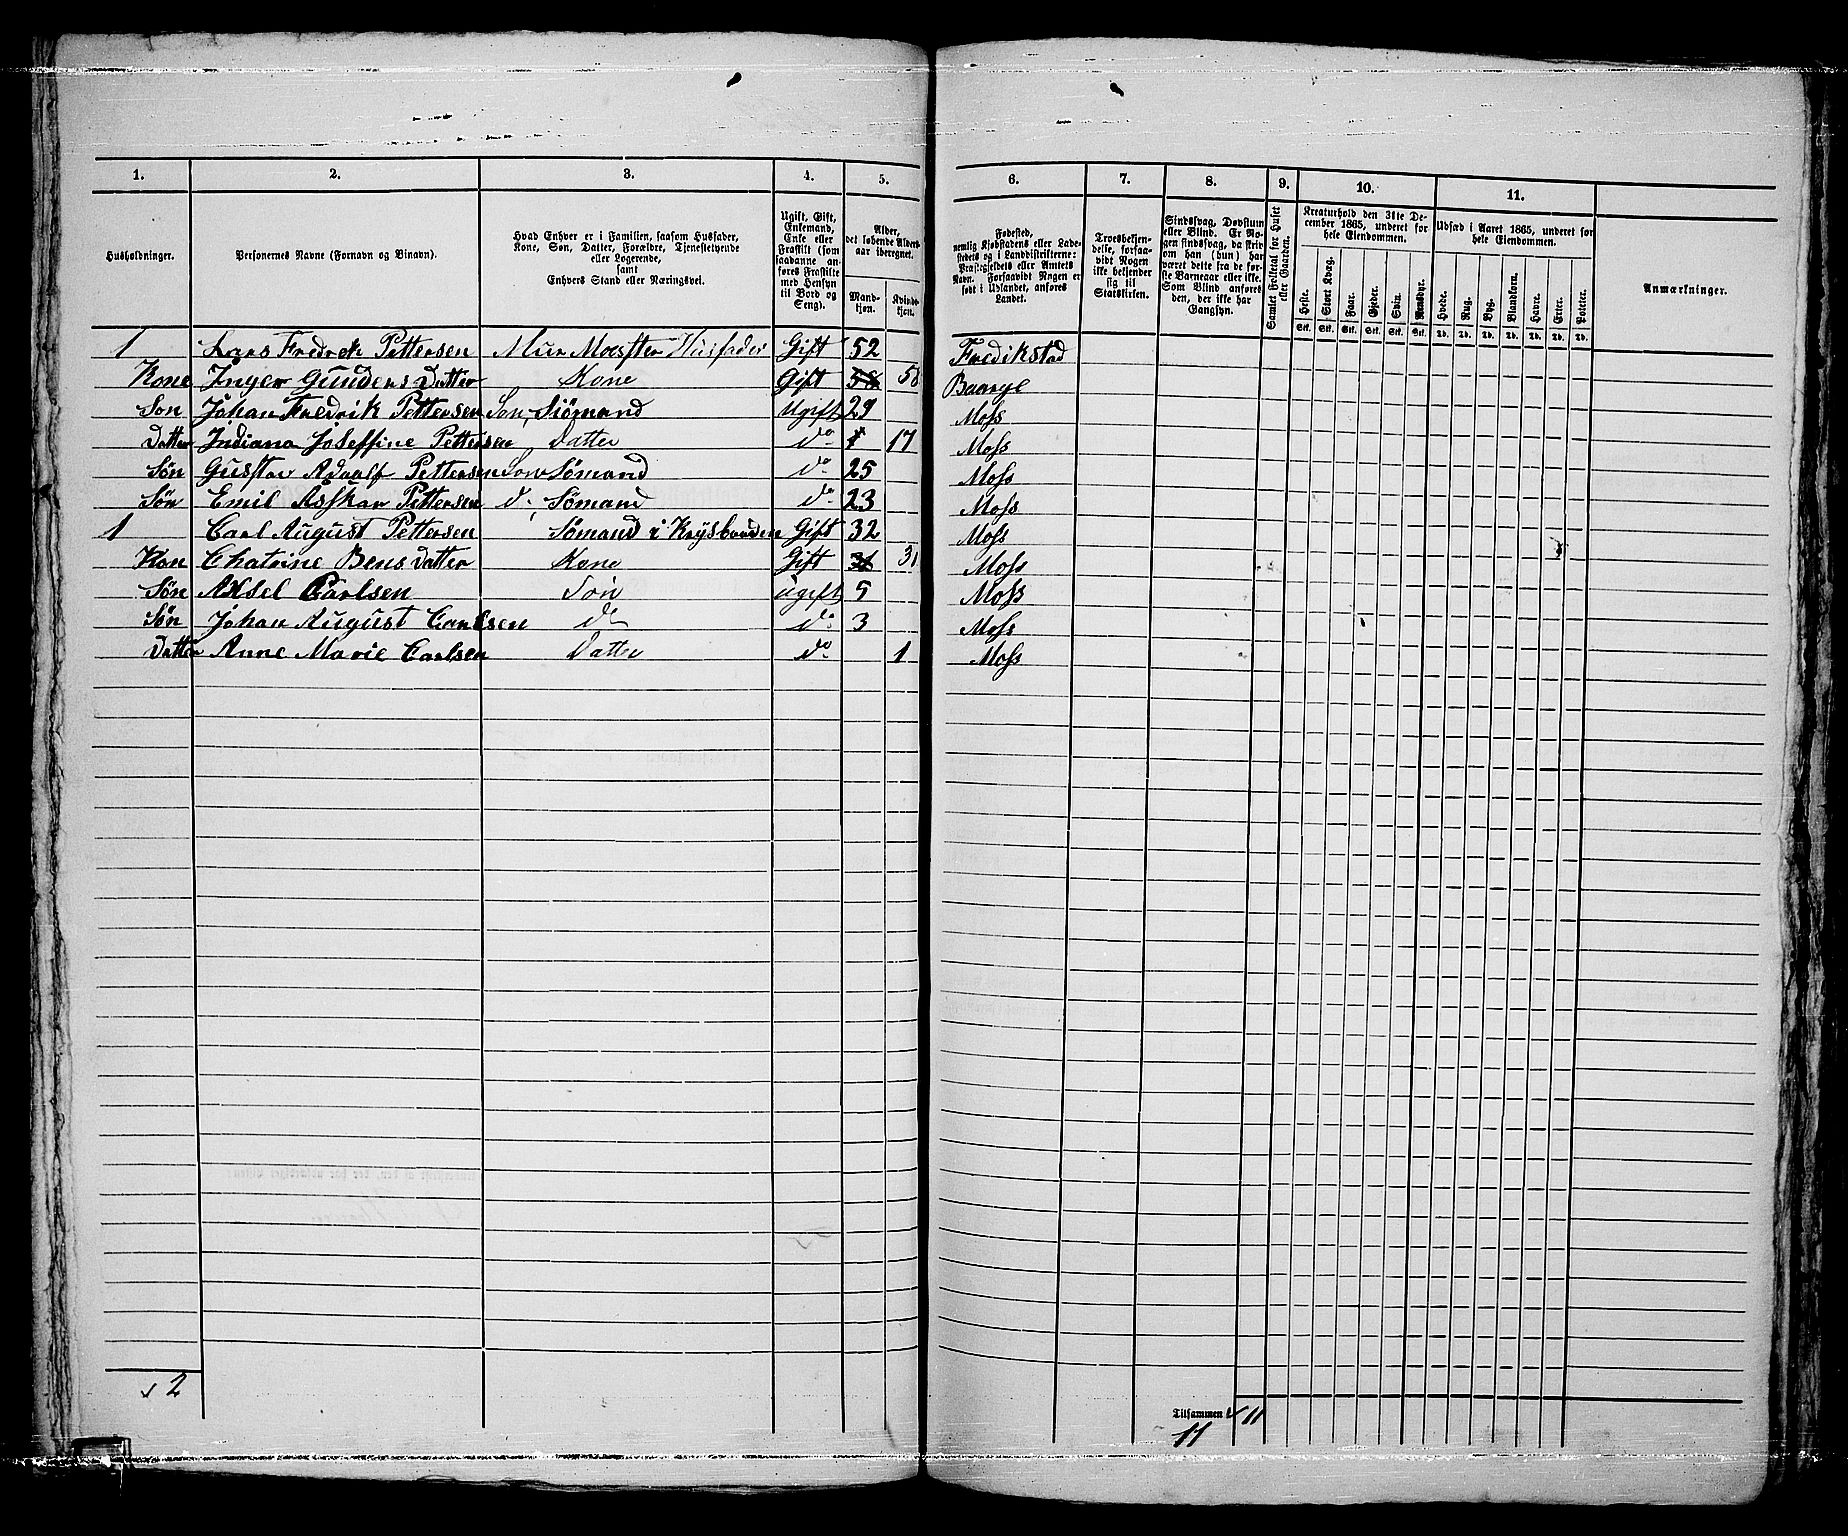 1. 2. 3. 4. 5. 6. 7. 8. 9. 10. 11.
Husholdninger.
Personernes Navne (Fornavn og Binavn).
Hvad Enhver er i Familien, saasom Husfader,
Kone, Søn, Datter, Forældre, Tjenestetyende
eller Logerende,
samt
Enhvers Stand eller Næringsvei.
Ugift, Gift,
Enkemand,
Enke eller
Fraskilt (som
saadanne an-
føres Fraskilte
med Hensyn
til Bord og
Seng).
Alder,
det løbende Alders-
aar iberegnet.
Mand-
kjøn.
Kvinde-
kjøn.
Fødested,
nemlig Kjøbstadens eller Lade-
stedets og i Landdistrikterne:
Præstegjeldets eller Amtets
Navn. Forsaavidt Nogen er
født i Udlandet, anføres
Landet.
Troesbekjen-
delse, forsaa-
vidt Nogen
ikke bekjender
sig til
Statskirken.
Sindssvag, Døvstum
eller Blind. Er No-
gen sindssvag, da skriv
om han (hun) har
været dette fra de før-
ste Barneaar eller ikke.
Som Blind anføres
den, der ikke har
Gangsyn.
Samlet Folketal for Huset
eller Gaarden.
Kreaturhold den 31te De-
cember 1865, underet for
hele Eiendommen.
Heste. Stort Kvæg. Faar. Gjeder. Svin. Rensdyr.
Stk. Stk. Stk. Stk. Stk. Stk.
Udsæd i Aaret 1865, underet for
hele Eiendommen.
Hvede. Rug. Byg. Blandkorn. Havre. Erter. Poteter.
Td. Td. Td. Td. Td. Td. Td.
Anmærkninger.
1 Lars Fredrek Pettersen Mur Mæsster Husfader Gift 52 Fredikstad
Kone Inger Gunders Datter Kone Gift 58 58 Baarge
Son Johan Fredrik Pettersen Son, Siømand Ugift 29 Moss
Datter Indiana Joseffine Pettersen Datter do 17 Moss
Søn Gusstav Adaalf Pettersen Son Sømand do 25 Moss
Søn Emil Asskar Pettersen do, Sømand do 23 Moss
1 Carl August Pettersen Sømand i Krysbanden Gift 32 Moss
Kon Chatrine Bens Datter Kone Gift 31 31 Moss
Søn Aksel Carlsen Søn Ugift 5 Moss
Søn Johan August Carlsen do do 3 Moss
Datter Anne Marie Carlsen Datter do 1 Moss
2
Tilsammen 11
11